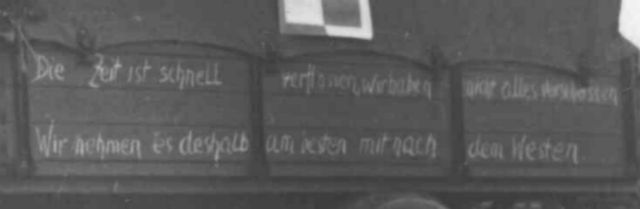 Die Zeit ist schnell verflossen, wir haben nicht alles verschossen
Wir nehmen es deshalb am besten mit nach dem Westen